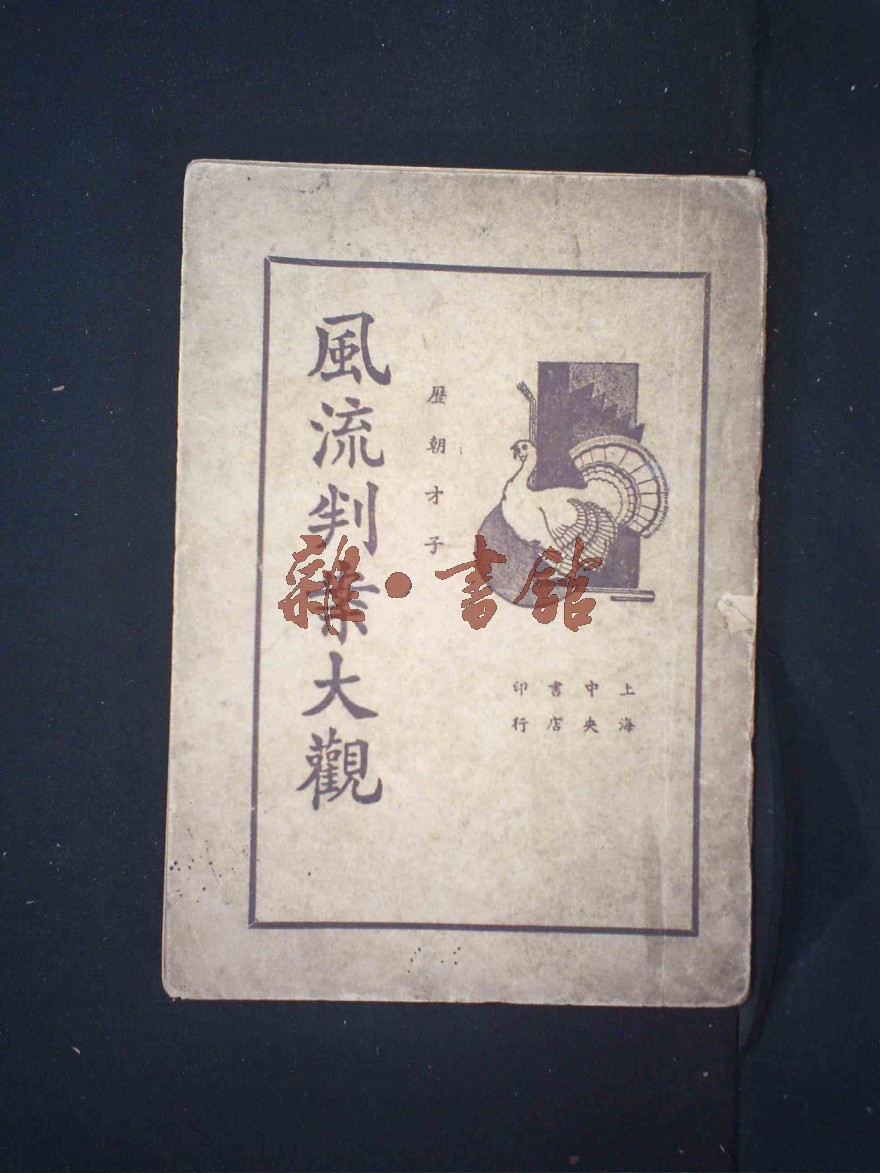 上海
中央
書店
印行
歷朝才子
風流判案大觀
雜·書館